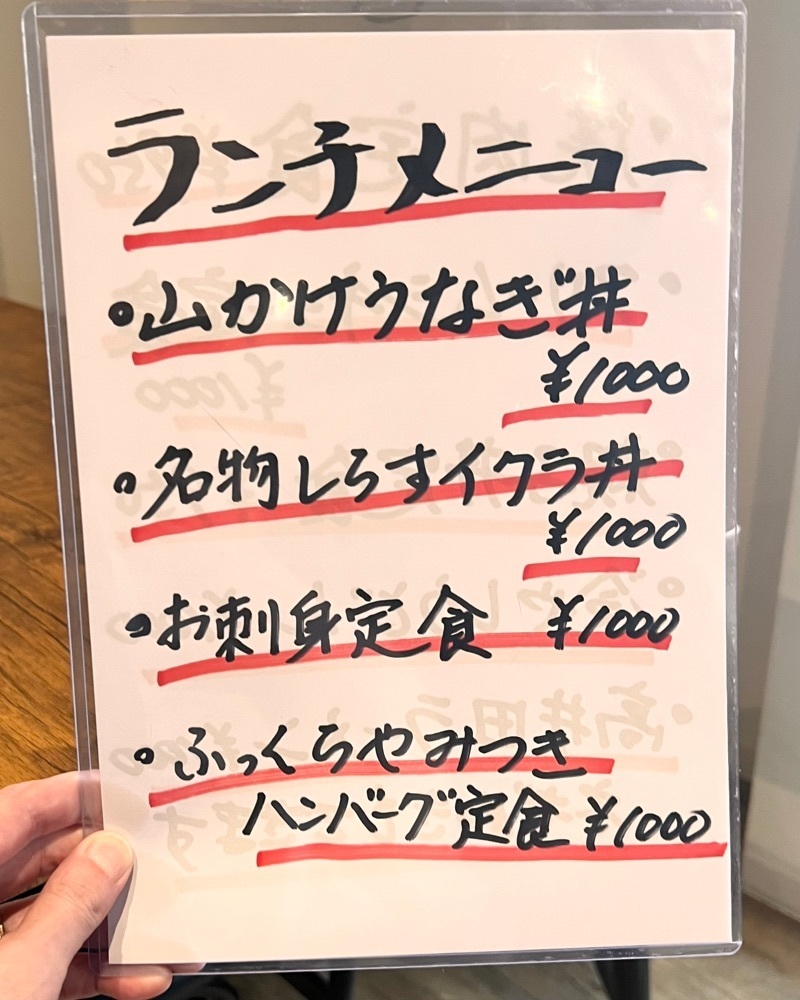 ランチメニュー
・山かけうなぎ丼
¥1000
・名物しらすイクラ丼
¥1000
・お刺身定食 ¥1000
・ふっくらやみつき
ハンバーグ定食 ¥1000